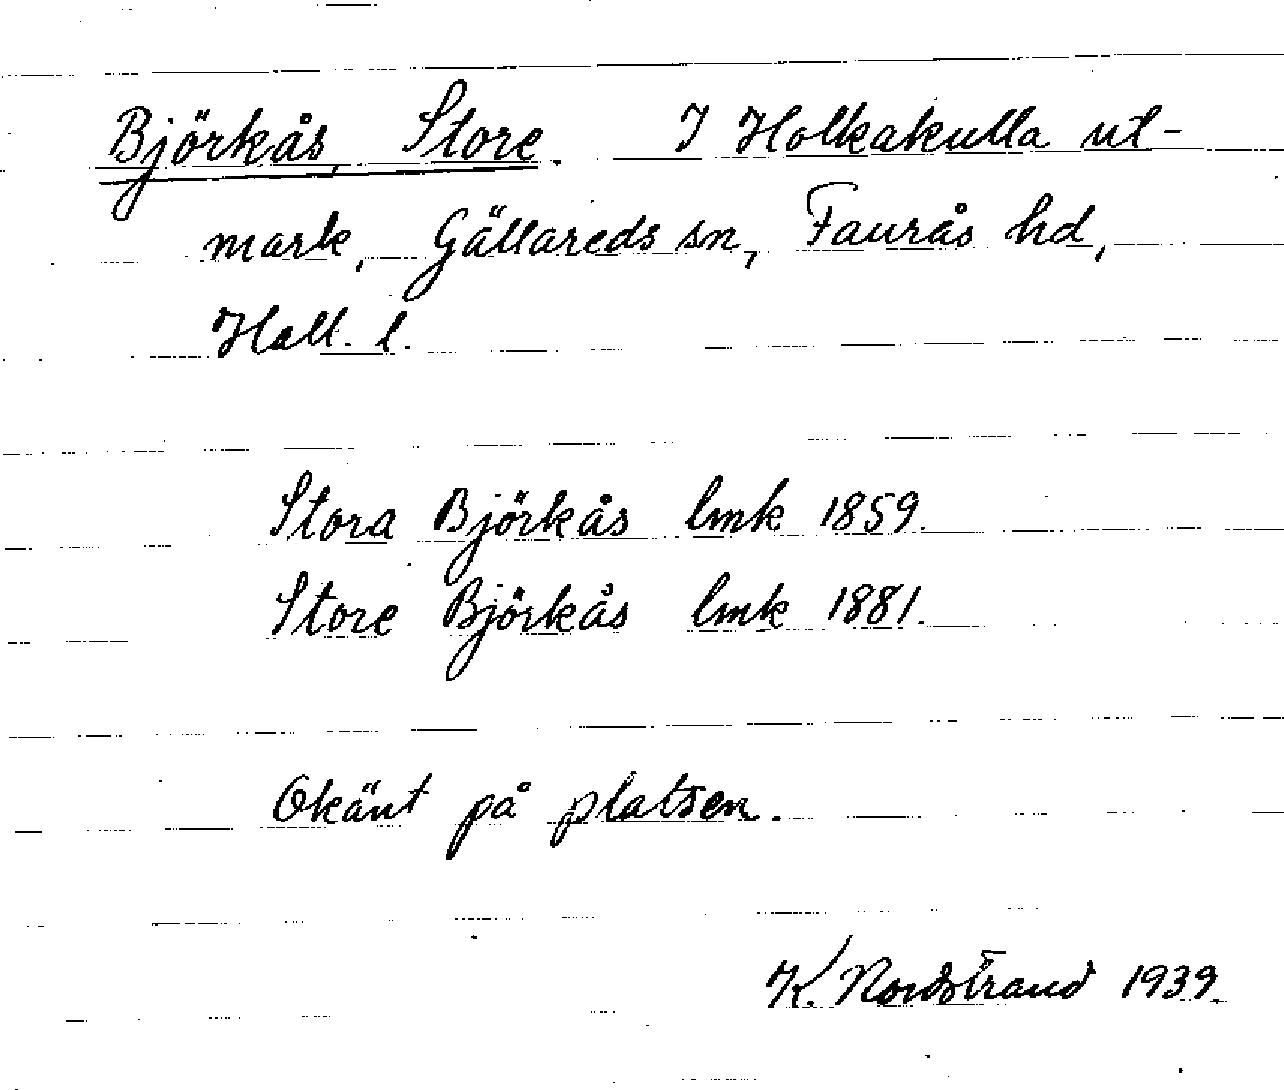 Björkås, Store. I Holkakulla ut-
mark, Gällareds sn, Faurås hd,
Hall. l.
Stora Björkås lmk 1859.
Store Björkås lmk 1881.
Okänt på platsen.
K. Nordstrand 1939.